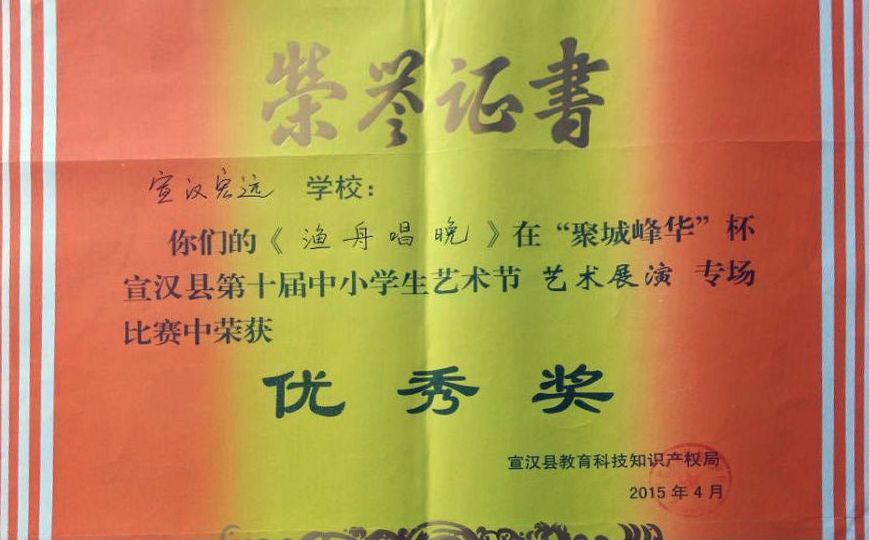 荣誉证书
宣汉宏远 学校：
你们的《渔舟唱晚》在“聚城峰华”杯
宣汉县第十届中小学生艺术节 艺术展演 专场
比赛中荣获
优秀奖
宣汉县教育科技知识产权局
2015年4月